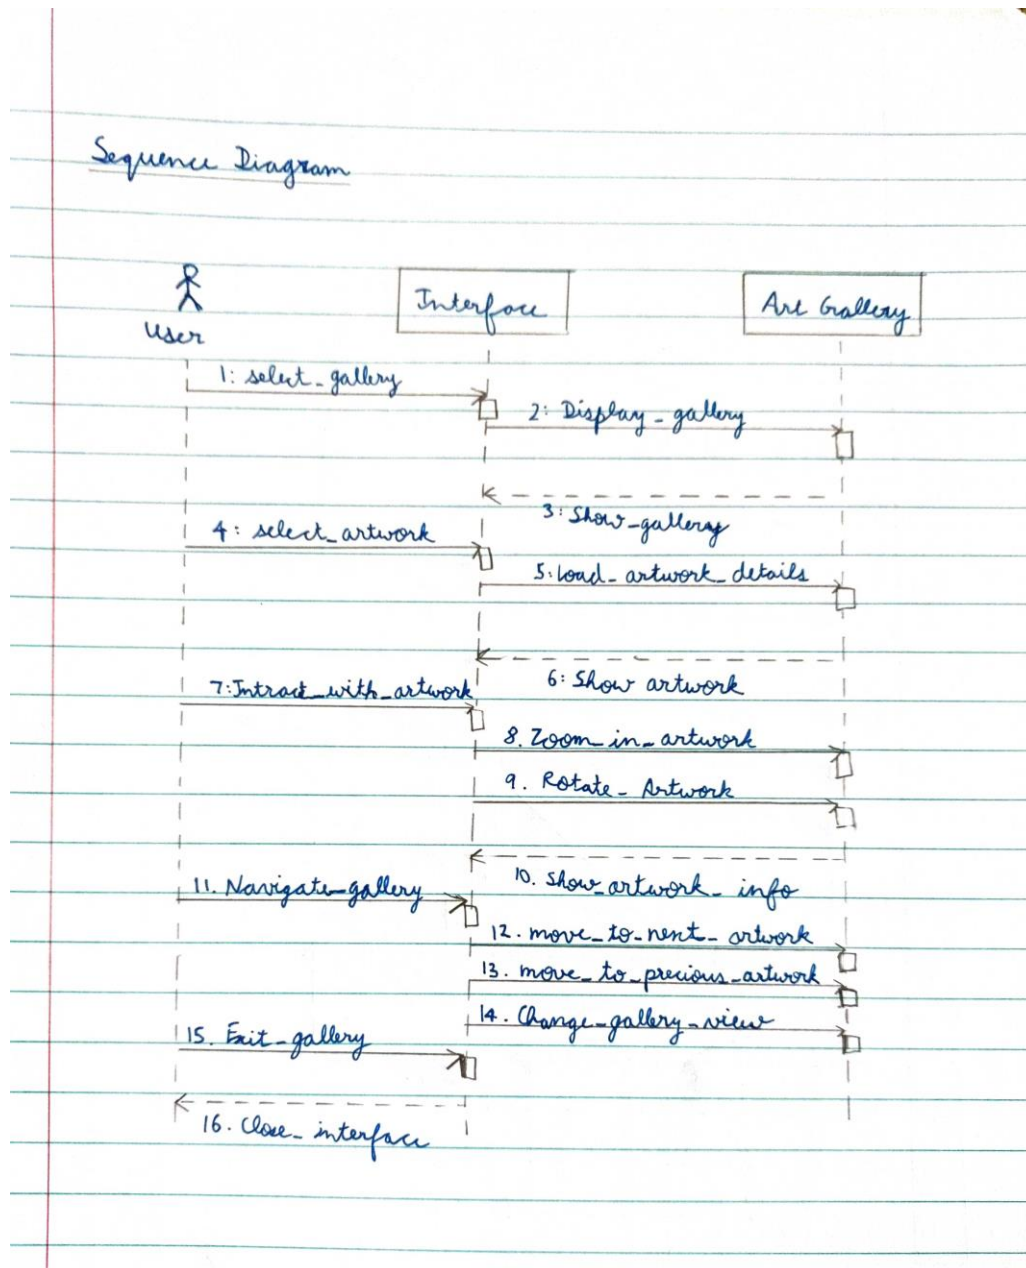 Sequence Diagram
User
Interface
Art Gallery
1: select_gallery
2: Display_gallery
3: Show_gallery
4: select_artwork
5: load_artwork_details
6: Show artwork
7: Intract_with_artwork
8. Zoom_in_artwork
9. Rotate_Artwork
10. Show_artwork_info
11. Navigate_gallery
12. move_to_next_artwork
13. move_to_precious_artwork
14. Change_gallery_view
15. Exit_gallery
16. Close_interface